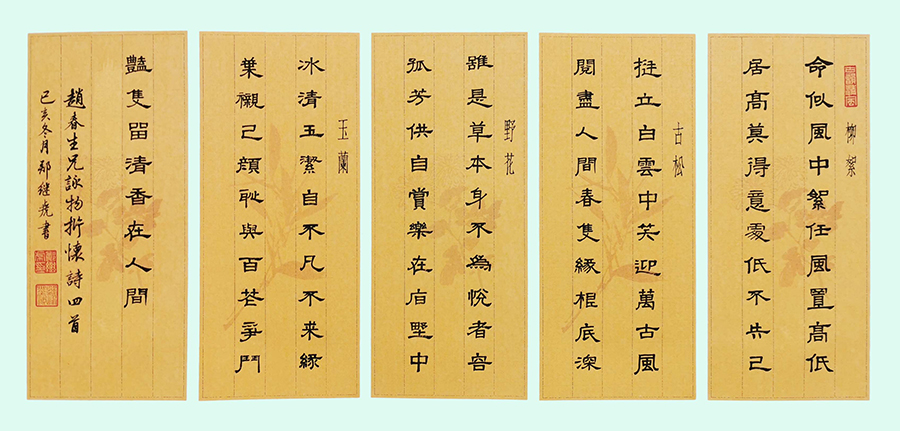 柳絮
命似風中絮任風置高低
居高莫得意處低不失己
古松
挺立白雲中笑迎萬古風
閱盡人間春隻緣根底深
野花
雖是草本身不為悅者容
孤芳供自賞樂在野中
玉蘭
冰清玉潔自不凡不求綠
葉襯己顏恥與百花爭鬥
豔隻留清香在人間
趙春生兄詠物抒懷詩四首
己亥冬月鄭继堯書